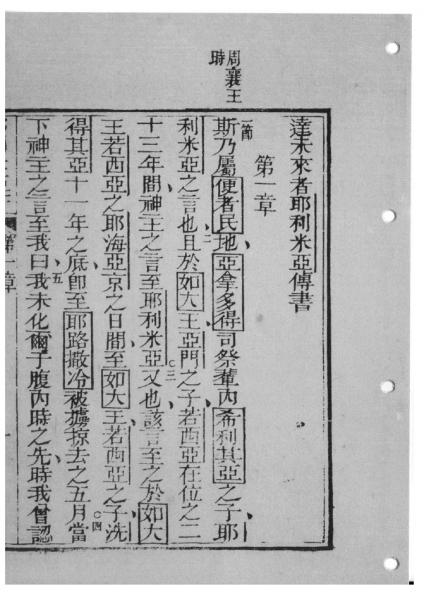 周襄王
時
達未來者耶利米亞傳書
第一章
一節
斯乃屬便者民地亞拿多得司祭輩內希利其亞之子耶
二
利米亞之言也且於如大王亞門之子若西亞在位之二
十三年間神主之言至耶利米亞又也該言至之於如大
○三
王若西亞之耶海亞京之日間至如大王若西亞之子洗
○四
得其亞十一年之底即至耶路撒冷被擄掠去之五月當
五
下神主之言至我曰我未化爾于腹內時之先時我曾認
第一章